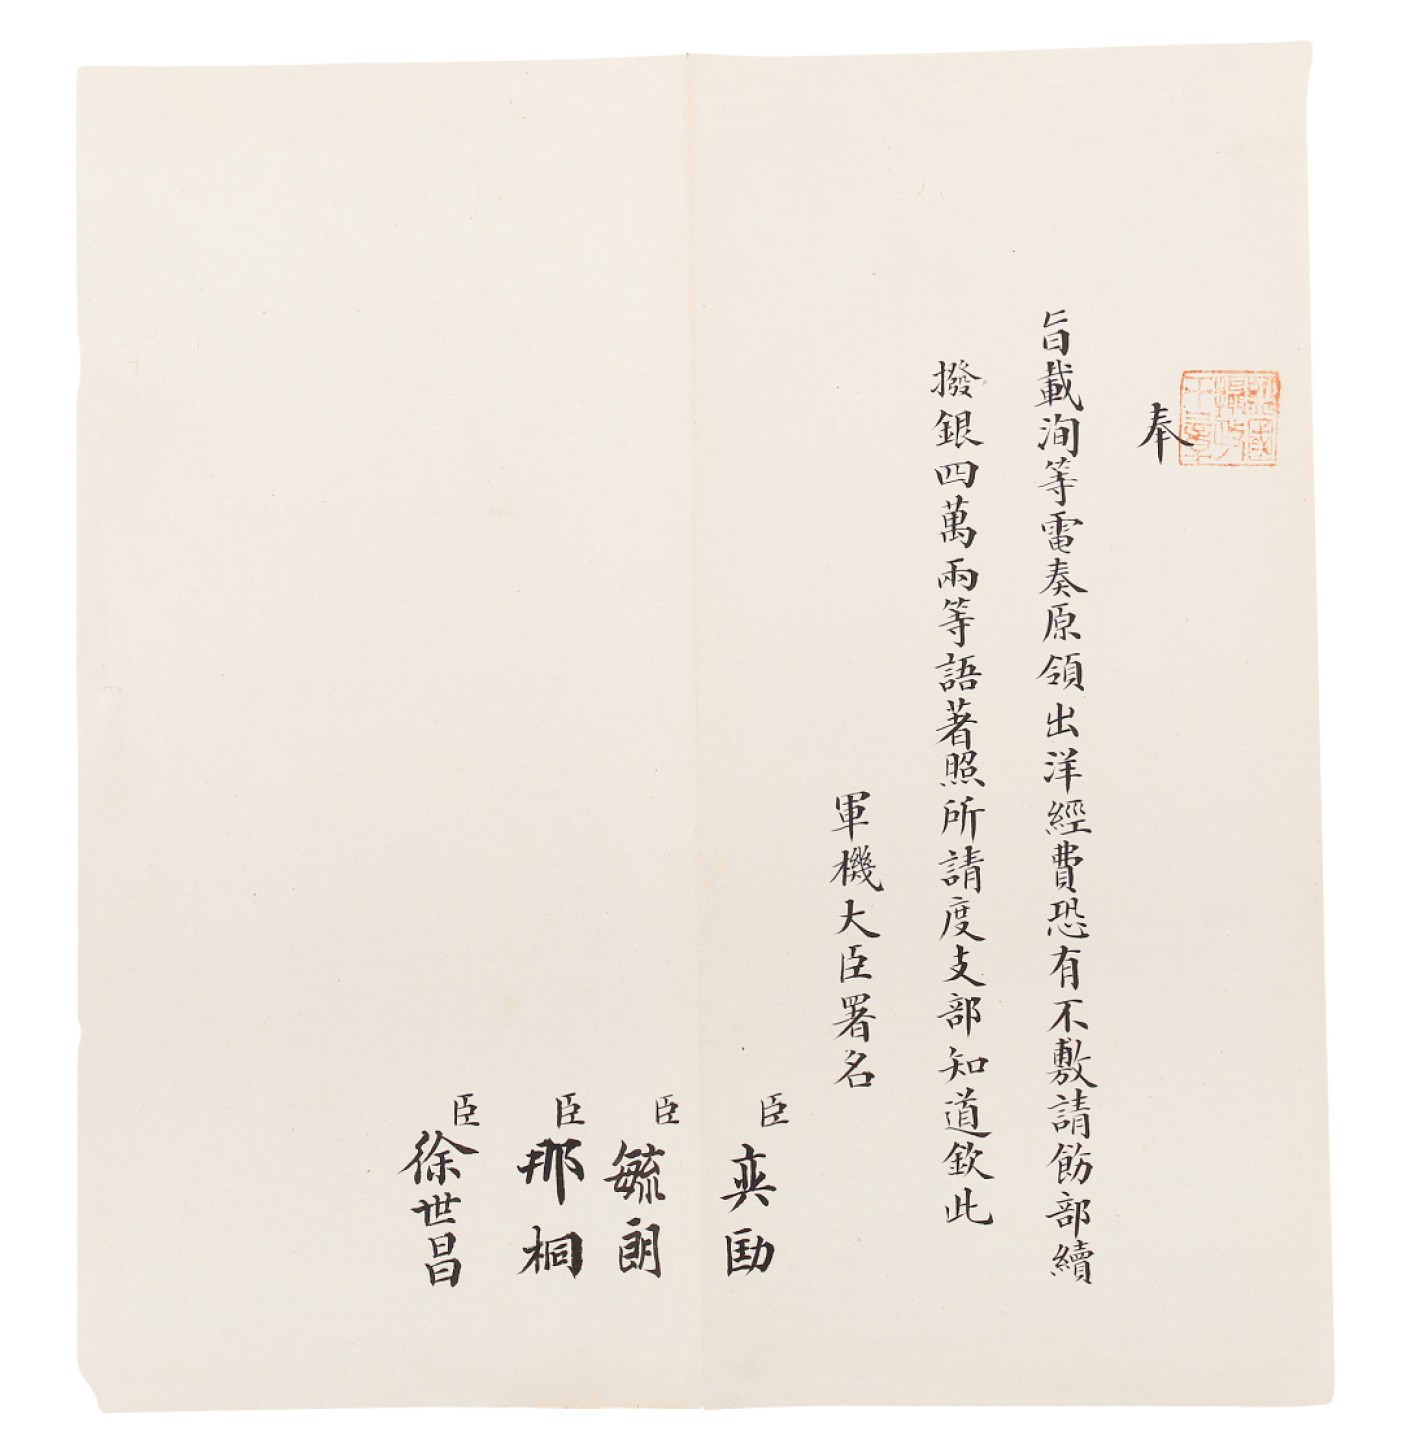 監國
攝政
王章
奉
旨載洵等電奏原領出洋經費恐有不敷請飭部續
撥銀四萬兩等語著照所請度支部知道欽此
軍機大臣署名
臣奕劻
臣毓朗
臣那桐
臣徐世昌